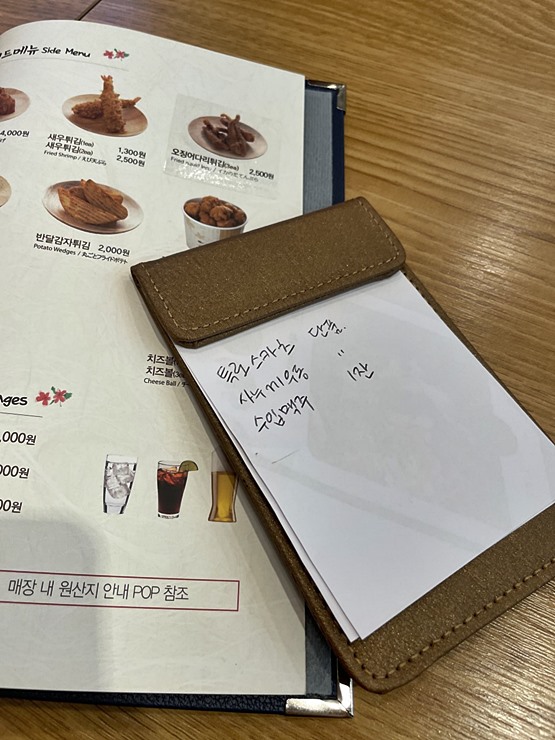 드메뉴 Side Menu
4,000원
새우튀김(1ea) 1,300원
새우튀김(2ea) 2,500원
Fried Shrimp / えびてんぷら
오징어다리튀김(3ea) 2,500원
Fried squid legs / イカのあしてんぷら
반달감자튀김 2,000원
Potato Wedges / 丸ごとフライドポテト
치즈볼
치즈볼
Cheese Ball / チー
ages
,000원
000원
00원
매장 내 원산지 안내 POP 참조
특로스카츠 단품.
사누끼우동 〃
수입맥주 1잔